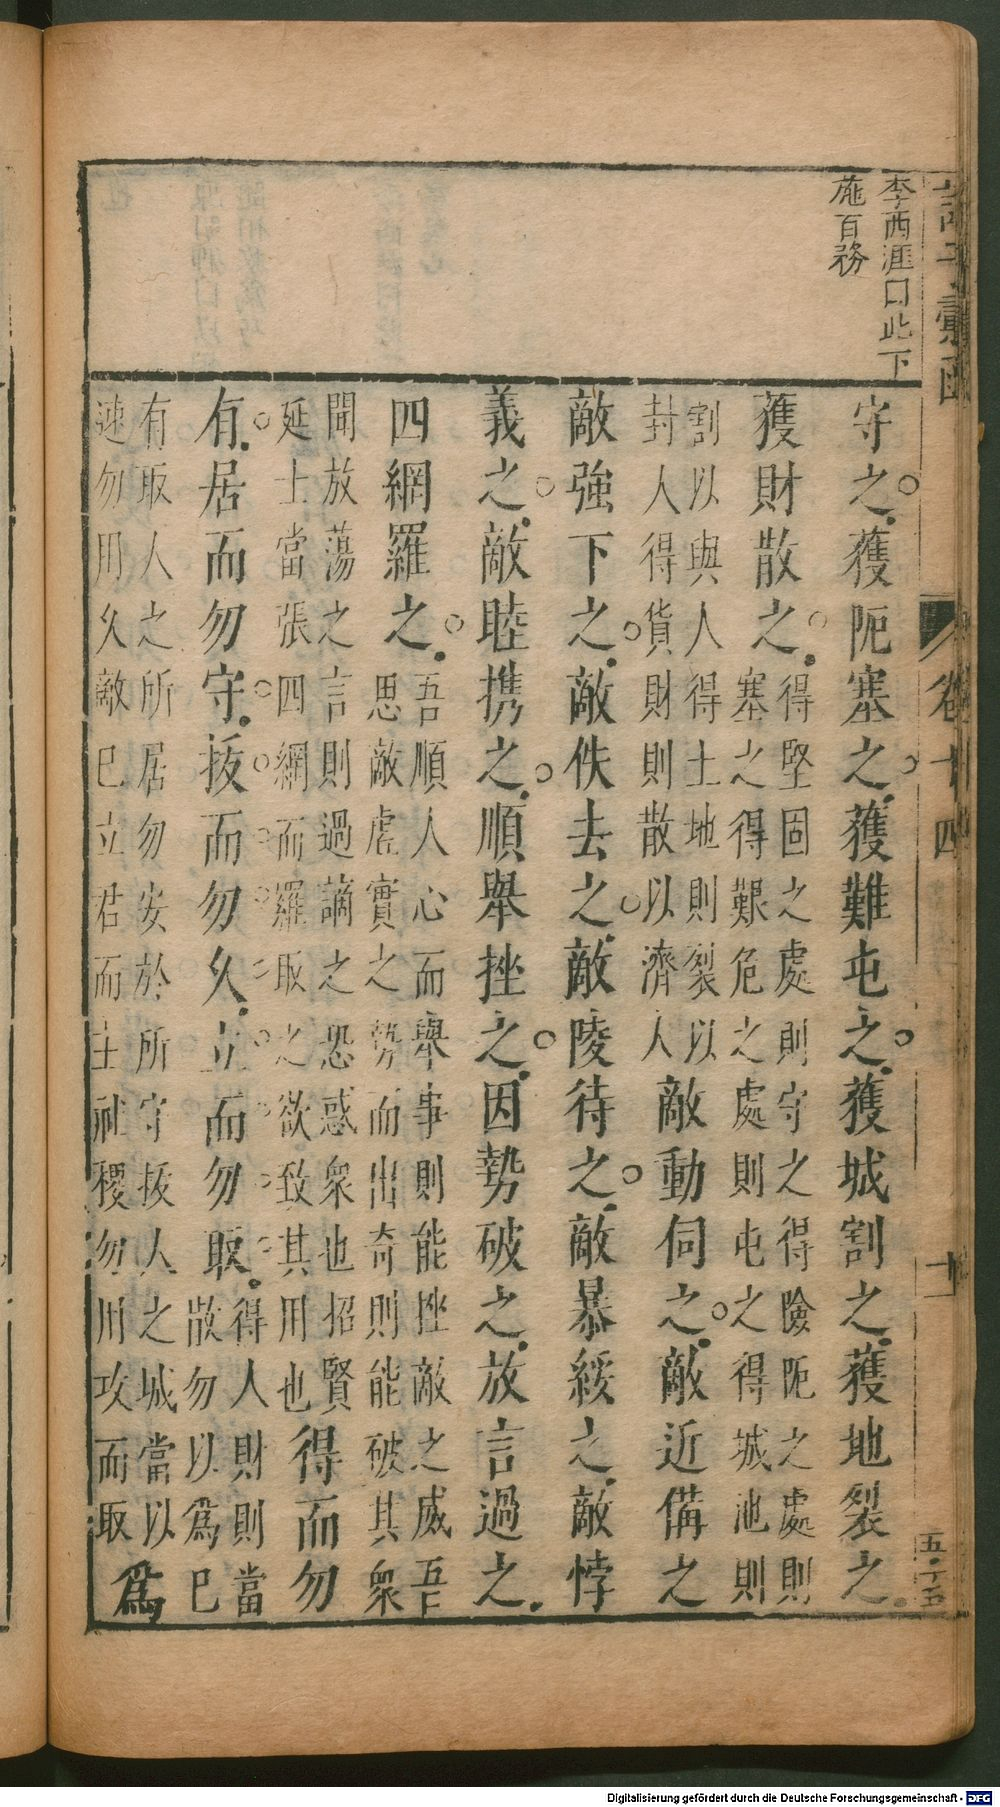 諸子彙函
卷十四
十一
五·十五
李西涯曰此下
施百務
守之獲阨塞之獲難屯之獲城割之獲地裂之
獲財散之得堅固之處則守之得險阨之處則
塞之得艱危之處則屯之得城池則
割以與人得土地則裂以
封人得貨財則散以濟人敵動伺之敵近備之
敵強下之敵佚去之敵陵待之敵暴綏之敵悖
義之敵睦携之順舉挫之因勢破之放言過之
四網羅之吾順人心而舉事則能挫敵之威吾
思敵虛實之勢而出奇則能破其衆
聞放蕩之言則過謫之恐惑衆也招賢
延士當張四網而羅取之欲致其用也得而勿
有居而勿守拔而勿久立而勿取得人財則當
散勿以爲已
有取人之所居勿安於所守拔人之城當以
速勿用久敵已立君而主社稷勿用攻而取爲
Digitalisierung gefördert durch die Deutsche Forschungsgemeinschaft - DFG